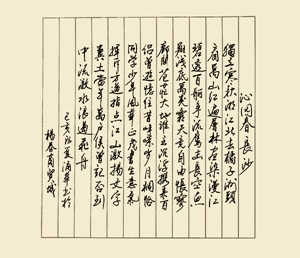 沁园春 长沙
独立寒秋湘江北去橘子洲头
看万山红遍层林尽染漫江
碧透百舸争流鹰击长空鱼
翔浅底万类霜天竞自由怅寥
廓问苍茫大地谁主沉浮携来百
侣曾游忆往昔峥嵘岁月稠恰
同学少年风华正茂书生意气
挥斥方遒指点江山激扬文字
粪土当年万户侯曾记否到
中流激水浪遏飞舟
己亥初夏
杨春